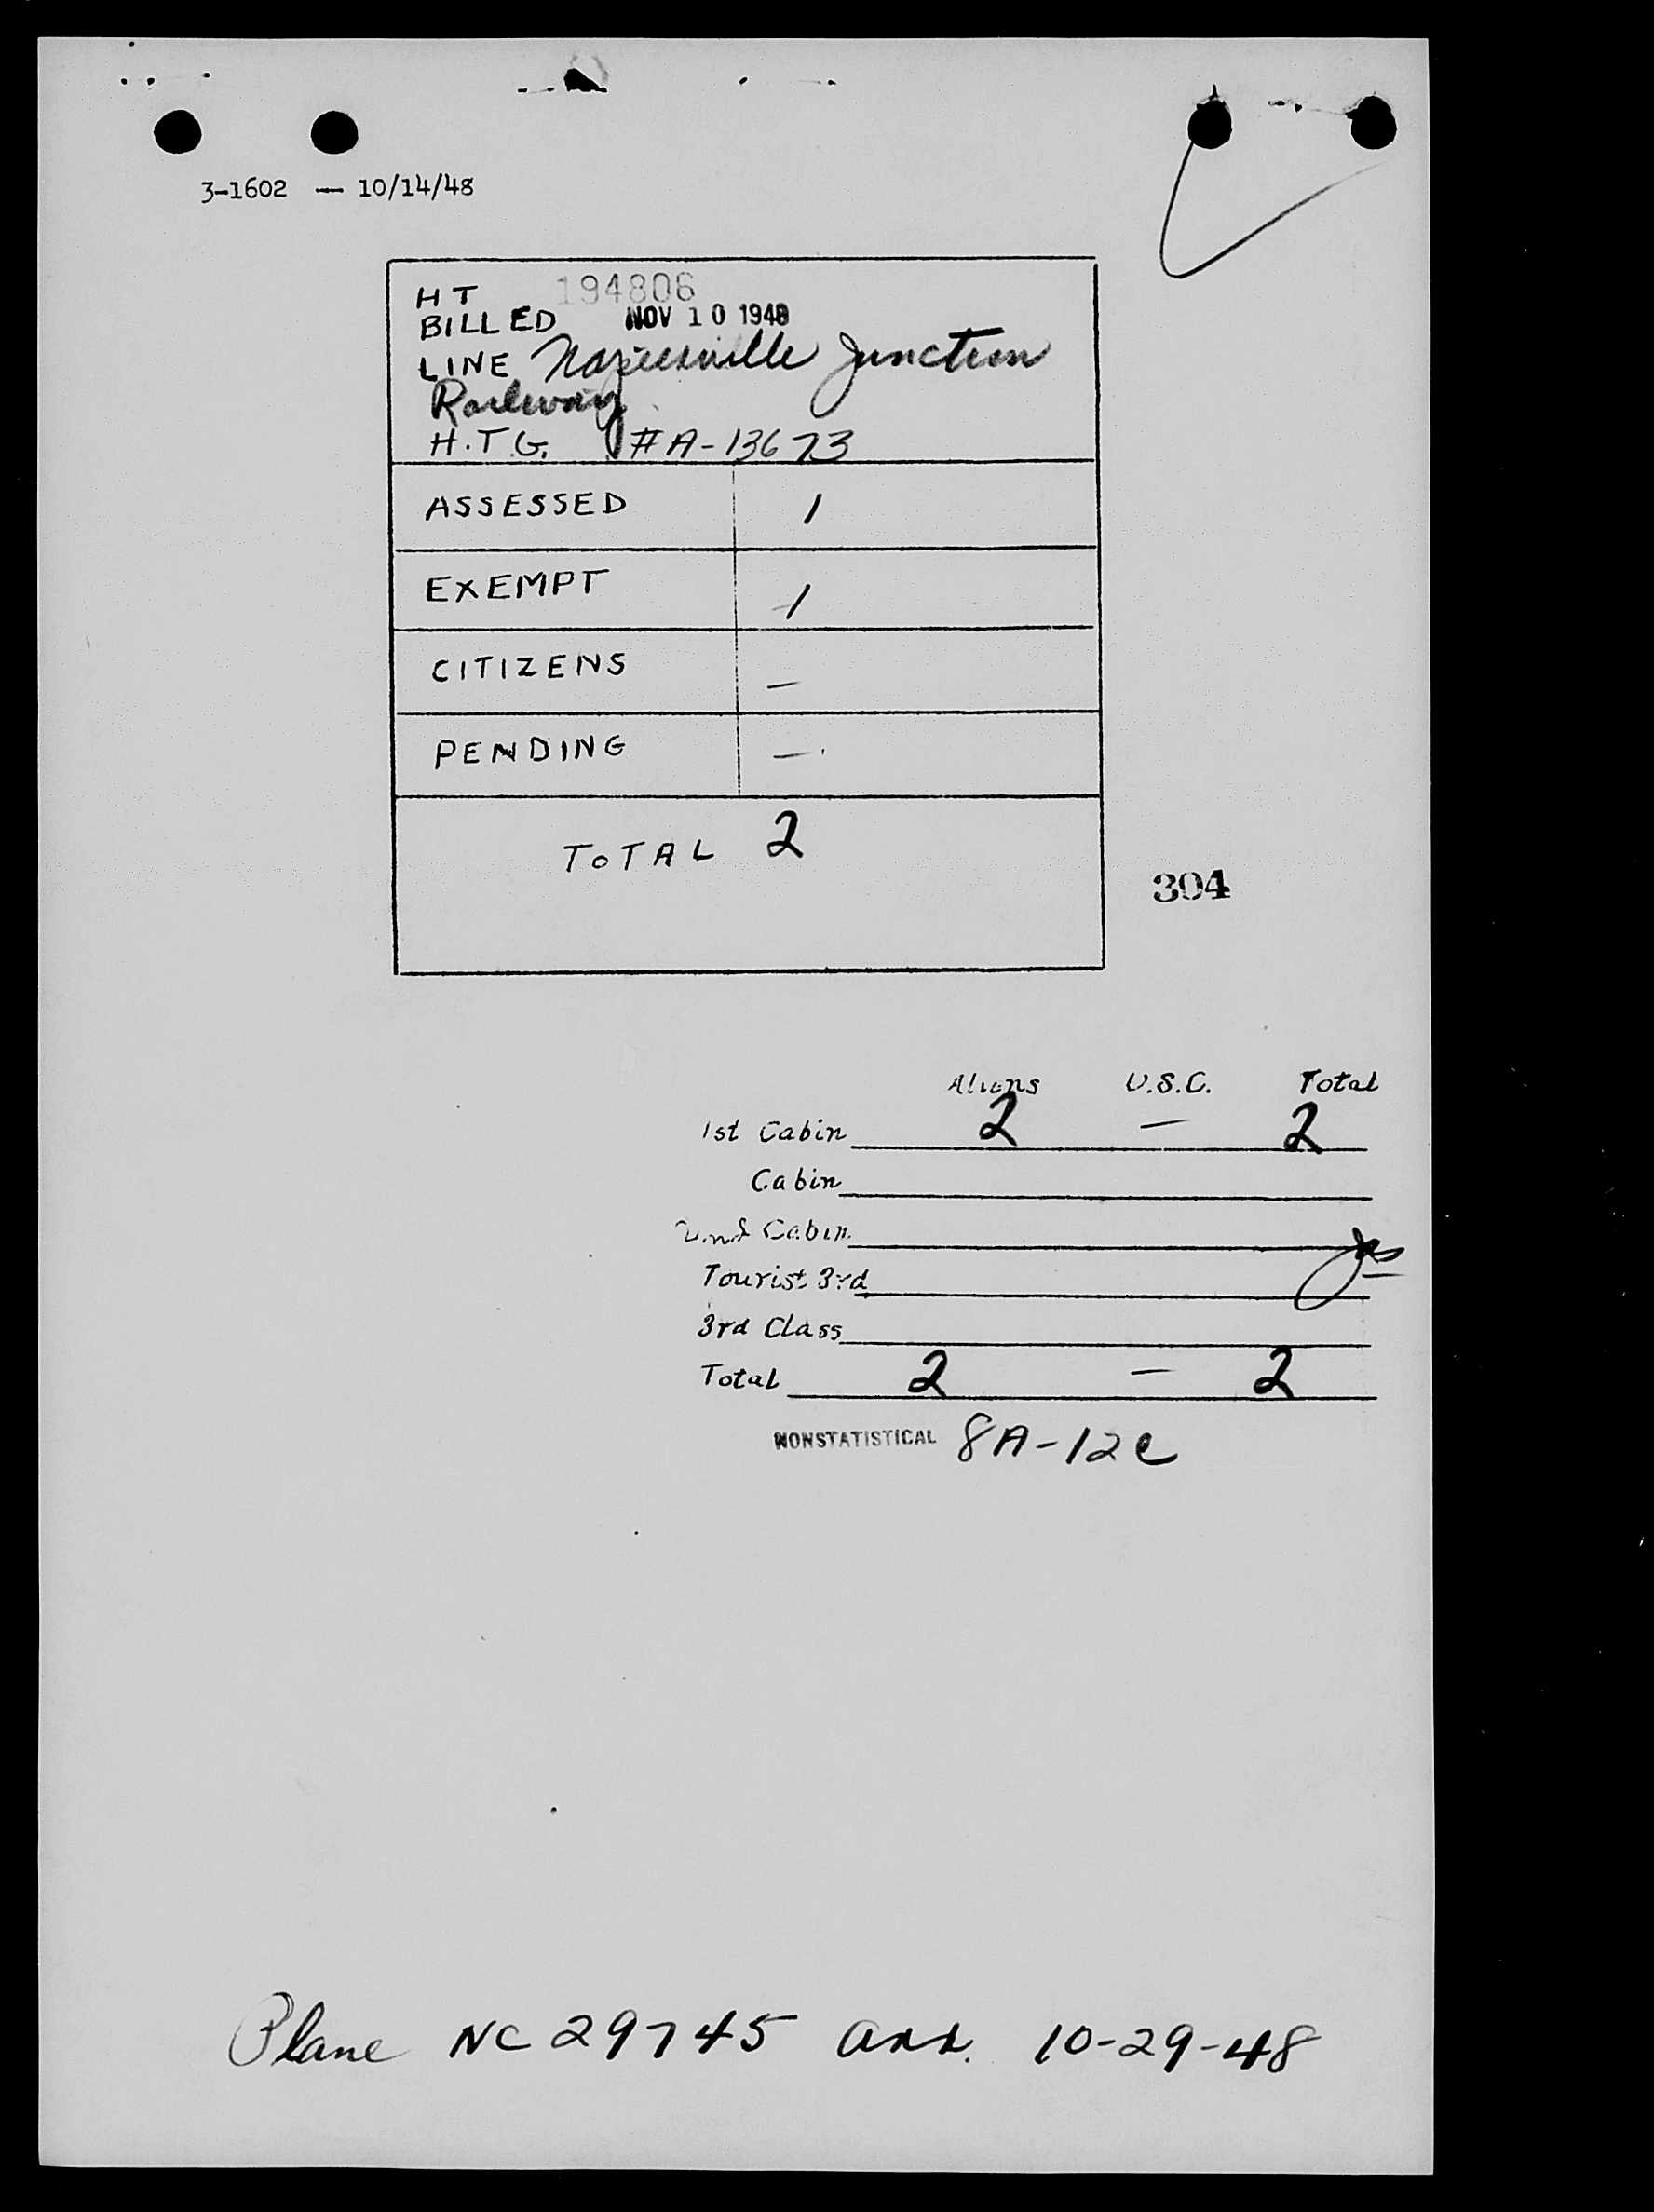 3-1602 — 10/14/48
HT 194806
BILLED NOV 10 1948
LINE Napierville Junction
Railway
H.T.G. #A-13673
ASSESSED 1
EXEMPT 1
CITIZENS —
PENDING —
TOTAL 2
304
Aliens U.S.C. Total
1st Cabin 2 — 2
Cabin
2nd Cabin
Tourist 3rd
3rd Class
Total 2 — 2
NONSTATISTICAL 8A-12c
Plane NC 29745 arr. 10-29-48